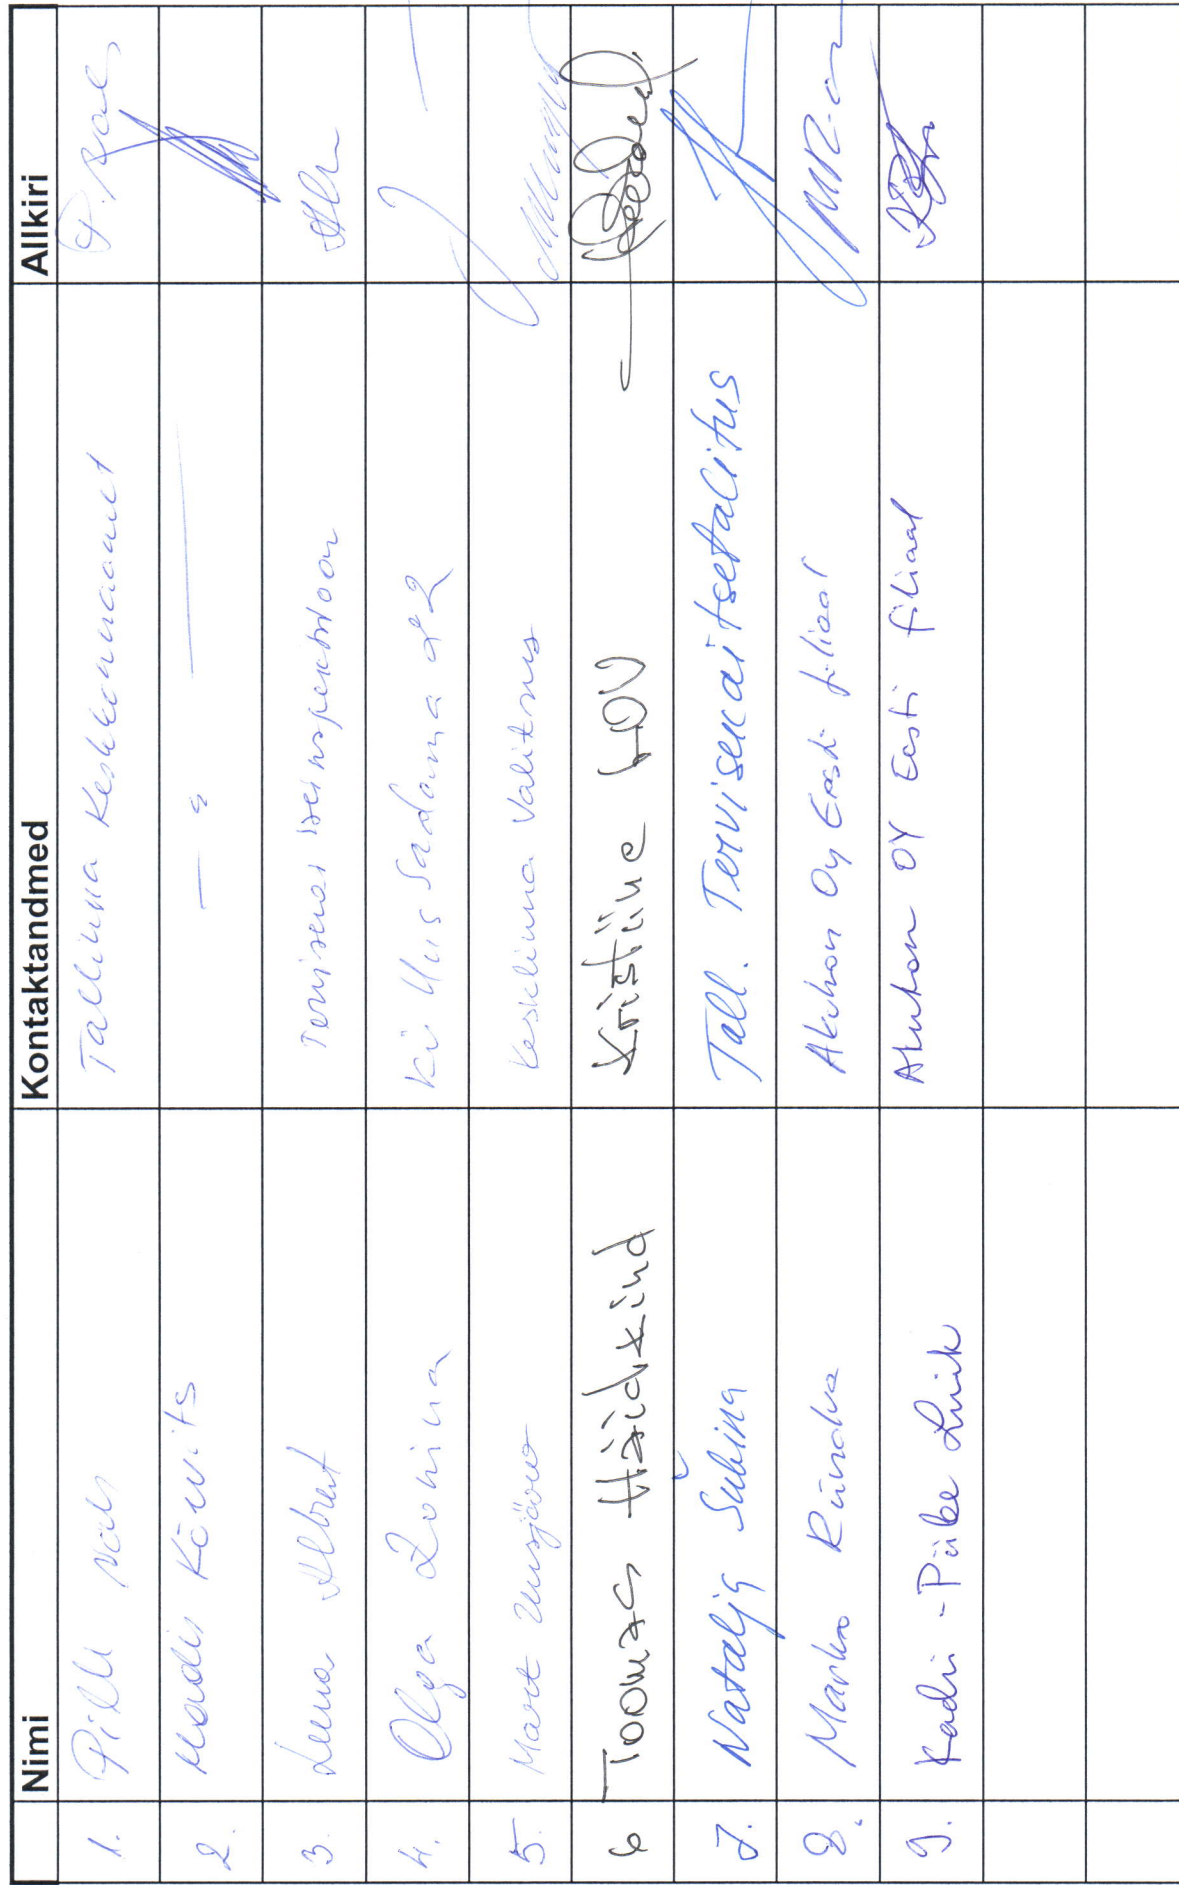 Nimi Kontaktandmed Allkiri
1. Pille Tallinna Keskkonnaamet
2. Madis Kõrvits — " —
3. Leena Albreht
4. Olga Zonina KÜ Uus Sadama 22
5. Mart Kesklinna Valitsus
6 Toomas Häidkind Kristiine LOV
7. Natalja Šubina Tall. Tervisekaitsetalitus
8. Marko Ründva Akukon Oy Eesti filiaal
9. Kadri-Piibe Luik Akukon OY Eesti filiaal